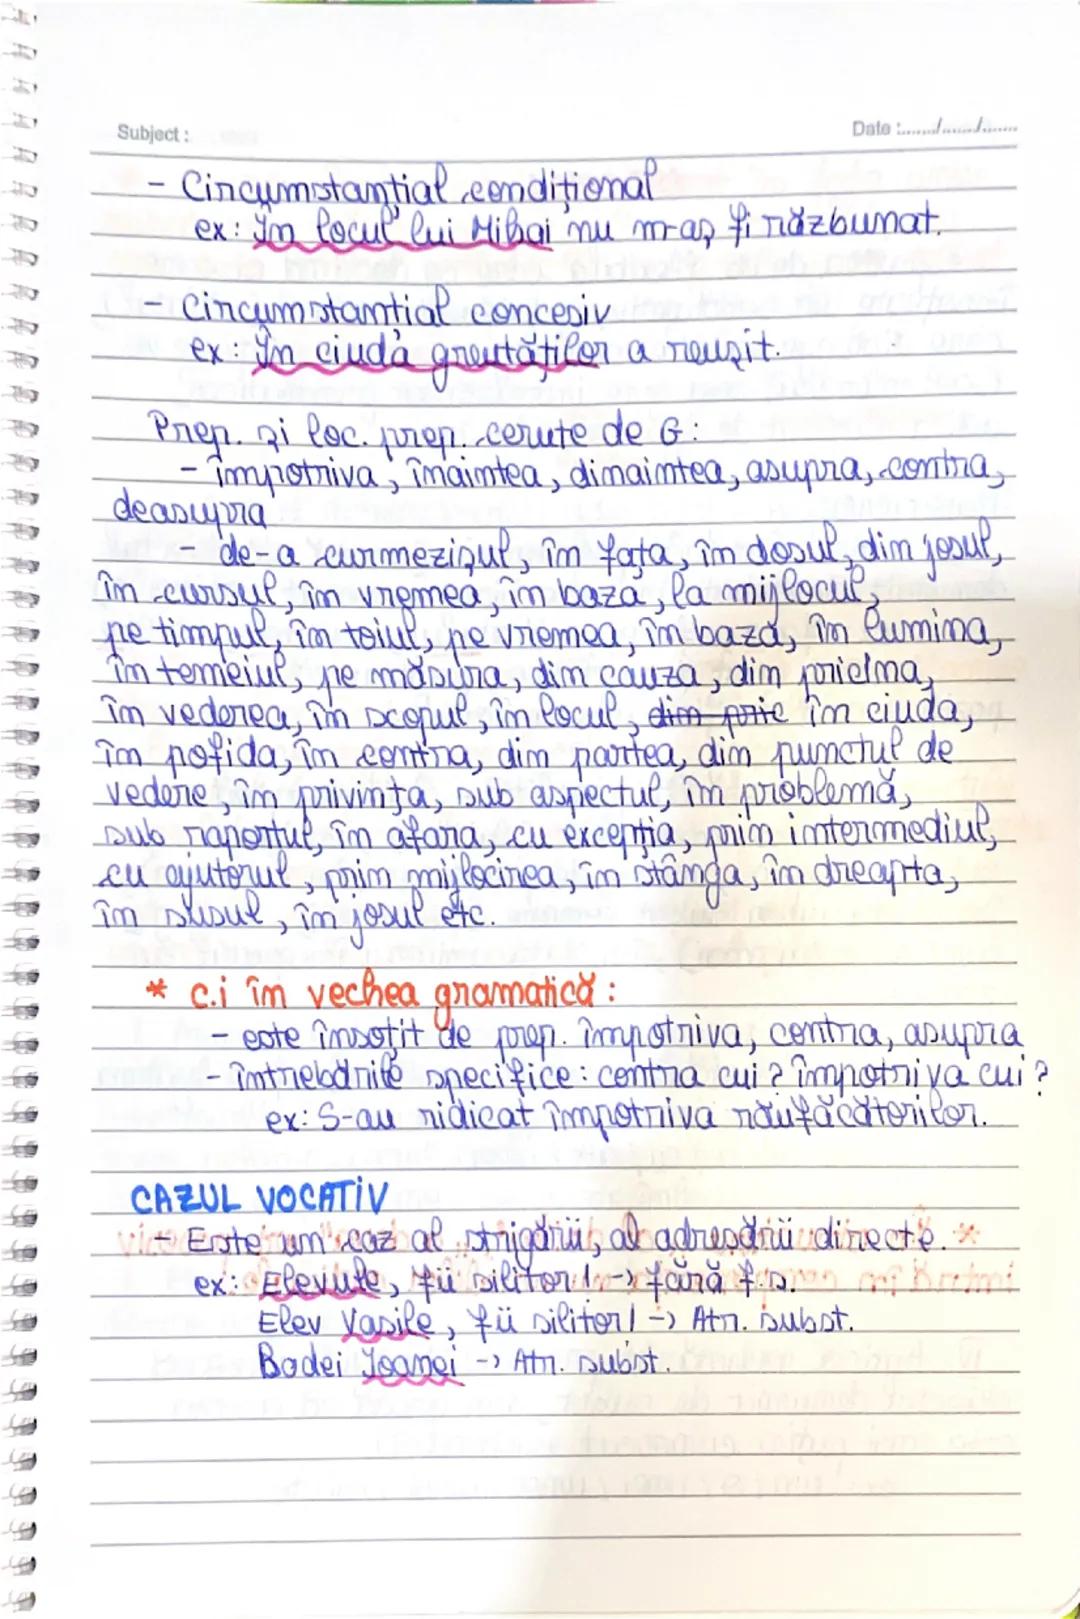 Subject :
Date :....../....../......
- Circumstanțial condițional
ex: În locul lui Mihai nu m-aș fi răzbunat.
- Circumstanțial concesiv
ex: În ciuda greutăților a reușit.
Prep. și loc. prep. cerute de G:
- împotriva, înaintea, dinaintea, asupra, contra,
deasupra
- de-a curmezișul, în fața, în dosul, din josul,
în cursul, în vremea, în baza, la mijlocul,
pe timpul, în toiul, pe vremea, în baza, în lumina,
în temeiul, pe măsura, din cauza, din pricina,
în vederea, în scopul, în locul, din pric în ciuda,
în pofida, în contra, din partea, din punctul de
vedere, în privința, sub aspectul, în problemă,
sub raportul, în afara, cu excepția, prin intermediul,
cu ajutorul, prin mijlocirea, în stânga, în dreapta,
în susul, în josul etc.
* c.i în vechea gramatică :
- este însoțit de prep. împotriva, contra, asupra
- întrebările specifice: contra cui? împotriva cui?
ex: S-au ridicat împotriva răufăcătorilor.
CAZUL VOCATIV
- Este un caz al strigării, al adresării directe.
ex: Elevule, fii silitor! -> fără f.s.
Elev Vasile, fii silitor! -> Atr. subst.
Badei Ioanei -> Atr. subst.